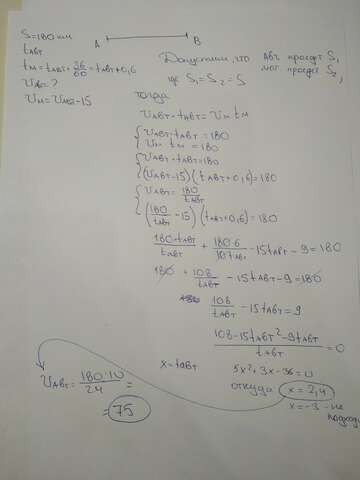 S=180 км
tавт
tм=tавт+36/60=tавт+0,6
Vав=?
Vм=Vмав-15
A B
Допустим, что авт проедет S₁
мот. проедет S₂,
где S₁=S₂=S
тогда
Vавт·tавт = Vм tм
{Vавт·tавт=180
Vм tм=180
{Vавт·tавт=180
(Vавт-15)(tавт+0,6)=180
{Vавт=180/tавт
(180/tавт-15)(tавт+0,6)=180
180·tавт/tавт + 180·6/10tав - 15tавт - 9=180
180 + 108/tавт - 15tавт - 9=180
108/tавт - 15tавт=9
108-15tавт²-9tавт/tавт =0
x=tавт 5x²+3x-36=0
откуда x=2,4
x=-3 - не
подходи
Vавт=180·10/24=
=75